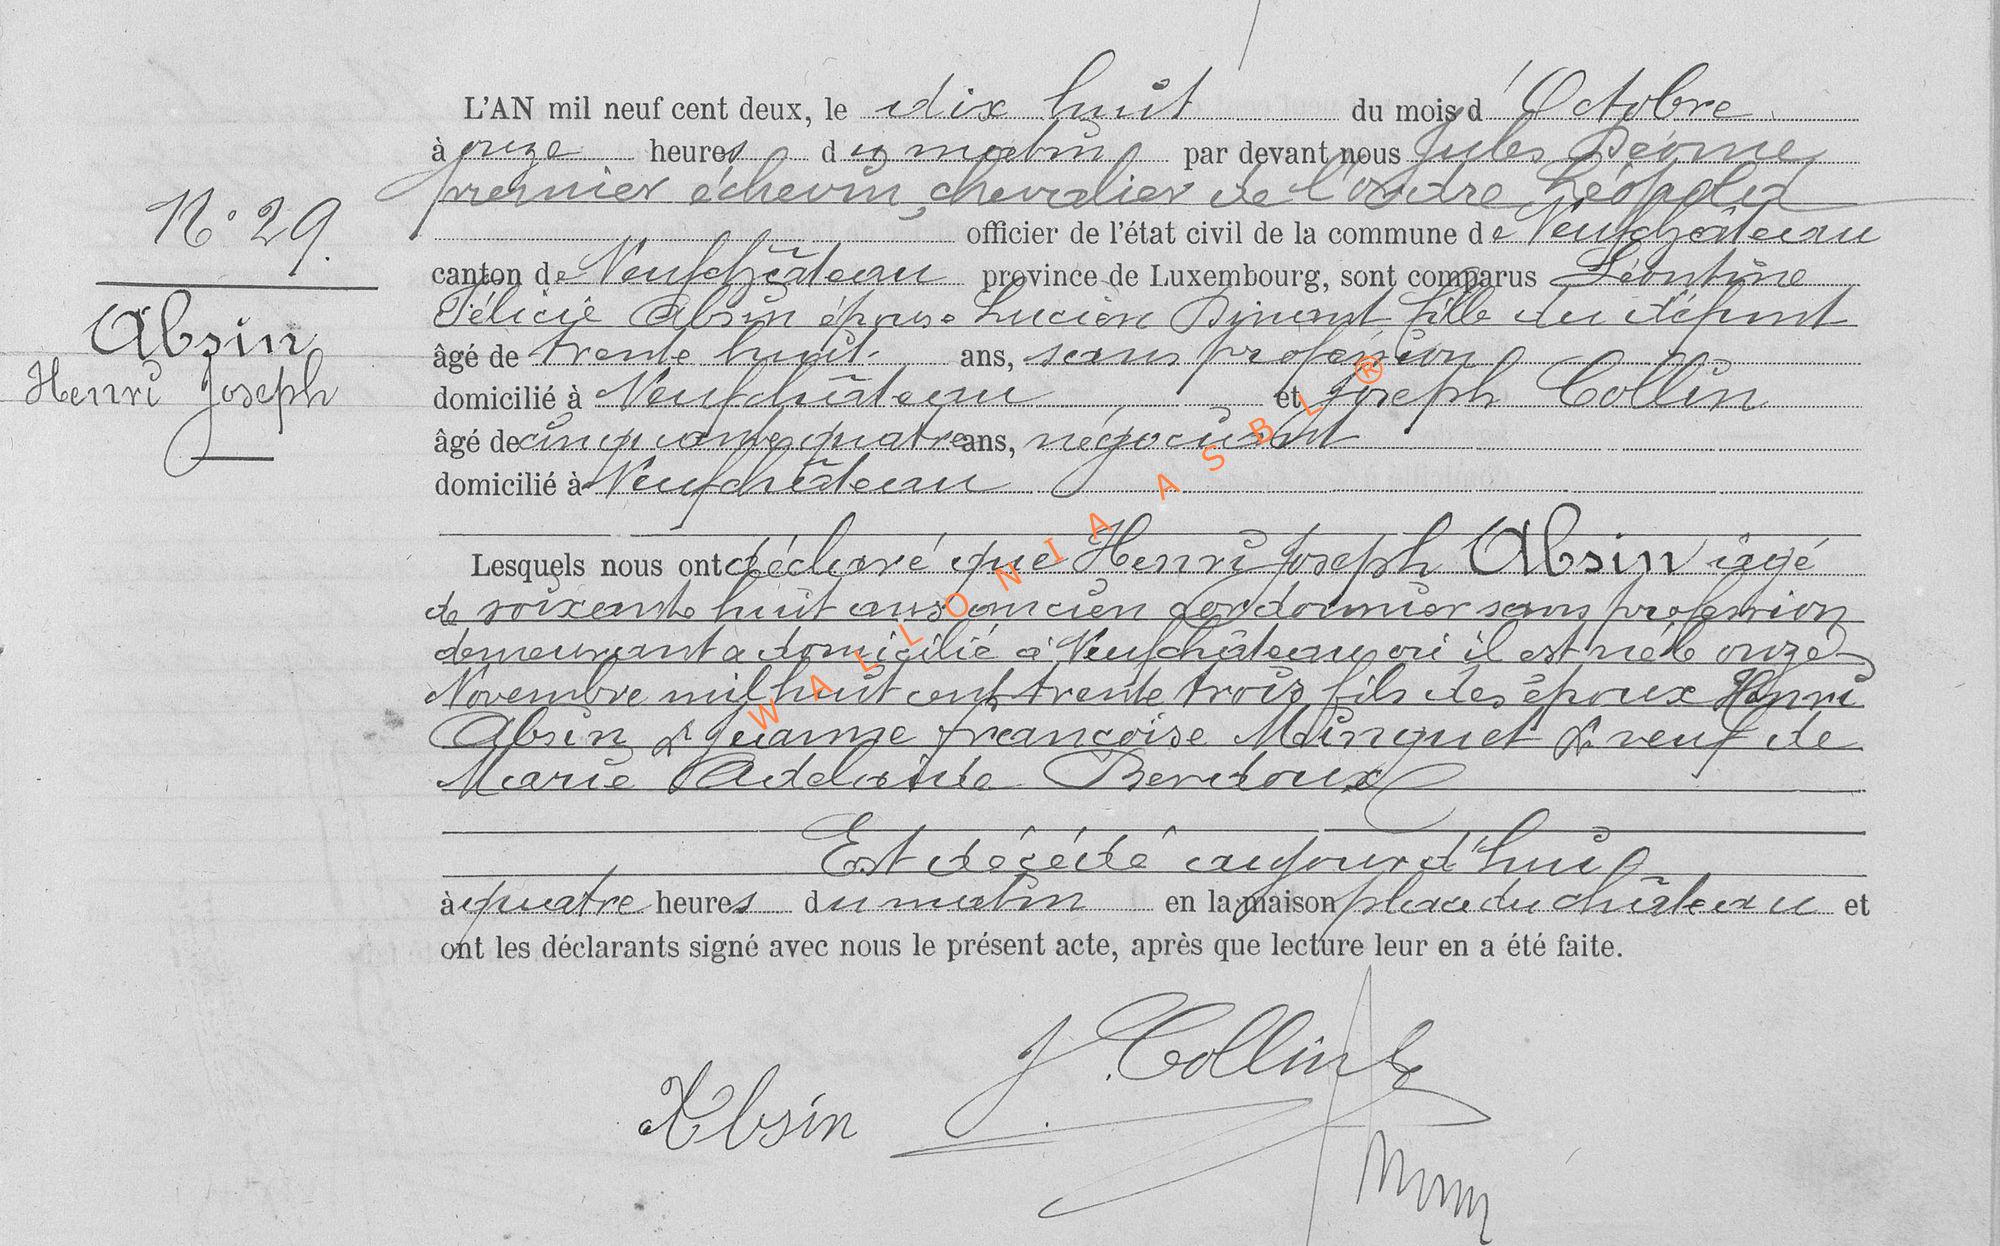 L'AN mil neuf cent deux, le dix huit du mois d'Octobre
à onze heures du matin par devant nous Jules Déome
premier échevin, chevalier de l'ordre Léopold
officier de l'état civil de la commune de Neufchâteau
N° 29.
canton de Neufchâteau province de Luxembourg, sont comparus Léontine
Félicie Absin épouse Lucien Dinant fille du défunt
Absin
Henri Joseph
âgé de trente huit ans, sans profession
domicilié à Neufchâteau et Joseph Collin
âgé de cinquante quatre ans, négociant
domicilié à Neufchâteau
Lesquels nous ont déclaré que Henri Joseph Absin âgé
de soixante huit ans ancien cordonnier sans profession
demeurant & domicilié à Neufchâteau où il est né le onze
Novembre mil huit cent trente trois fils des époux Henri
Absin & Jeanne françoise Minguet & veuf de
Marie Adelaïde Berdoux
Est décédé aujourd'hui
à quatre heures du matin en la maison place du château et
ont les déclarants signé avec nous le présent acte, après que lecture leur en a été faite.
J. Collin
Absin
WALLONIA ASBL ®